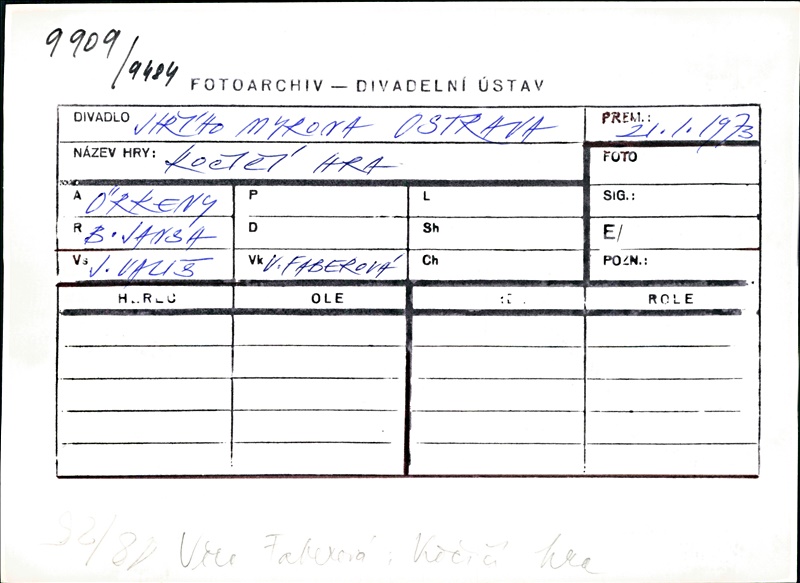 9909/9484
FOTOARCHIV — DIVADELNÍ ÚSTAV
DIVADLO JIŘÍHO MYRONA OSTRAVA PREM.: 21.1.1973
NÁZEV HRY: KOČIČÍ HRA FOTO
A ÖRKENY P L SIG.:
R B. JANSA D Sh E/
Vs J. VALIŠ Vk V. FABEROVÁ Ch POZN.:
ROLE
Faberová: Kočičí hra